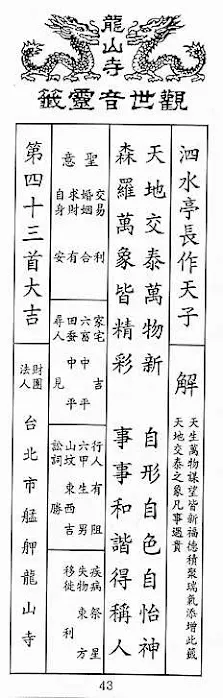 龍山寺
觀世音靈籤
泗水亭長作天子
解
天生萬物謀望皆新福德積聚瑞氣添增此籤
天地交泰之象凡事遇貴
天地交泰萬物新 自形自色自怡神
森羅萬象皆精彩 事事和諧得稱人
聖意
交易 利
婚姻 合
求財 有
自身 安
家宅 吉
六畜 中平
田蚕 中平
尋人 見
行人 有阻
六甲 生男
山坟 東西吉
訟詞 勝
疾病 祭星
失物 東方
移徙 利
第四十三首大吉
財團法人 台北市艋舺龍山寺
43